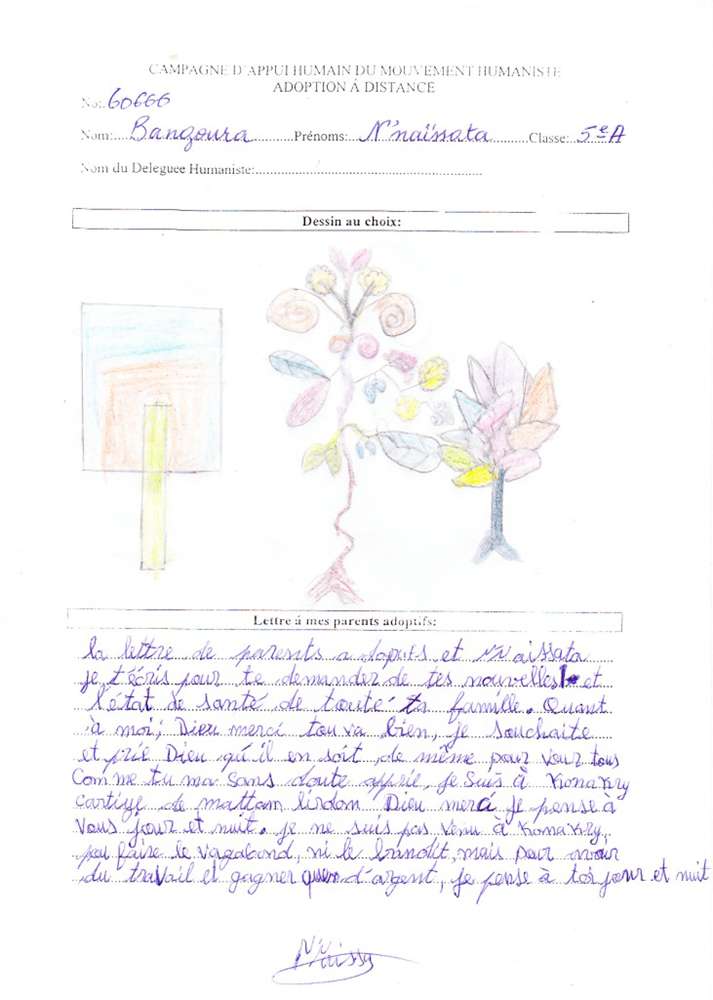 CAMPAGNE D'APPUI HUMAIN DU MOUVEMENT HUMANISTE
ADOPTION Á DISTANCE
No:.60666
Nom:....Bangoura............Prénoms:....N'naïssata..........Classe:..5e A
Nom du Deleguee Humaniste:..............................................................
Dessin au choix:
Lettre á mes parents adoptifs:
la lettre de parents adoptifs et N'Naissata
je t'écris pour te demander de tes nouvelles et
l'état de santé de toute ta famille. Quant
à moi; Dieu merci tou va bien, je souchaite
et prie Dieu qu'il en soit de même pour vour tous
Comme tu ma sans doute apprie, je suis à Konakry
cartiye de mattam lirdon Dieu merci je pense à
Vous jour et nuit. je ne suis pas venu à Konakry
peu faire le vagabond, ni le bandit, mais pour avoir
du travail et gagner d'argent, je pense à toi jour et nuit
N'Naissa